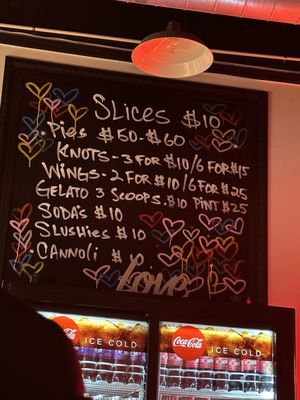 SLICES $10
Pies $50-$60
KNOTS - 3 FOR $10/6 FOR $15
WINGS - 2 FOR $10/6 FOR $25
GELATO 3 SCOOPS. $10 PINT $25
SODA'S $10
SLUSHIES $10
CANNOLI $
Love
Coca-Cola ICE COLD
Coca-Cola ICE COLD